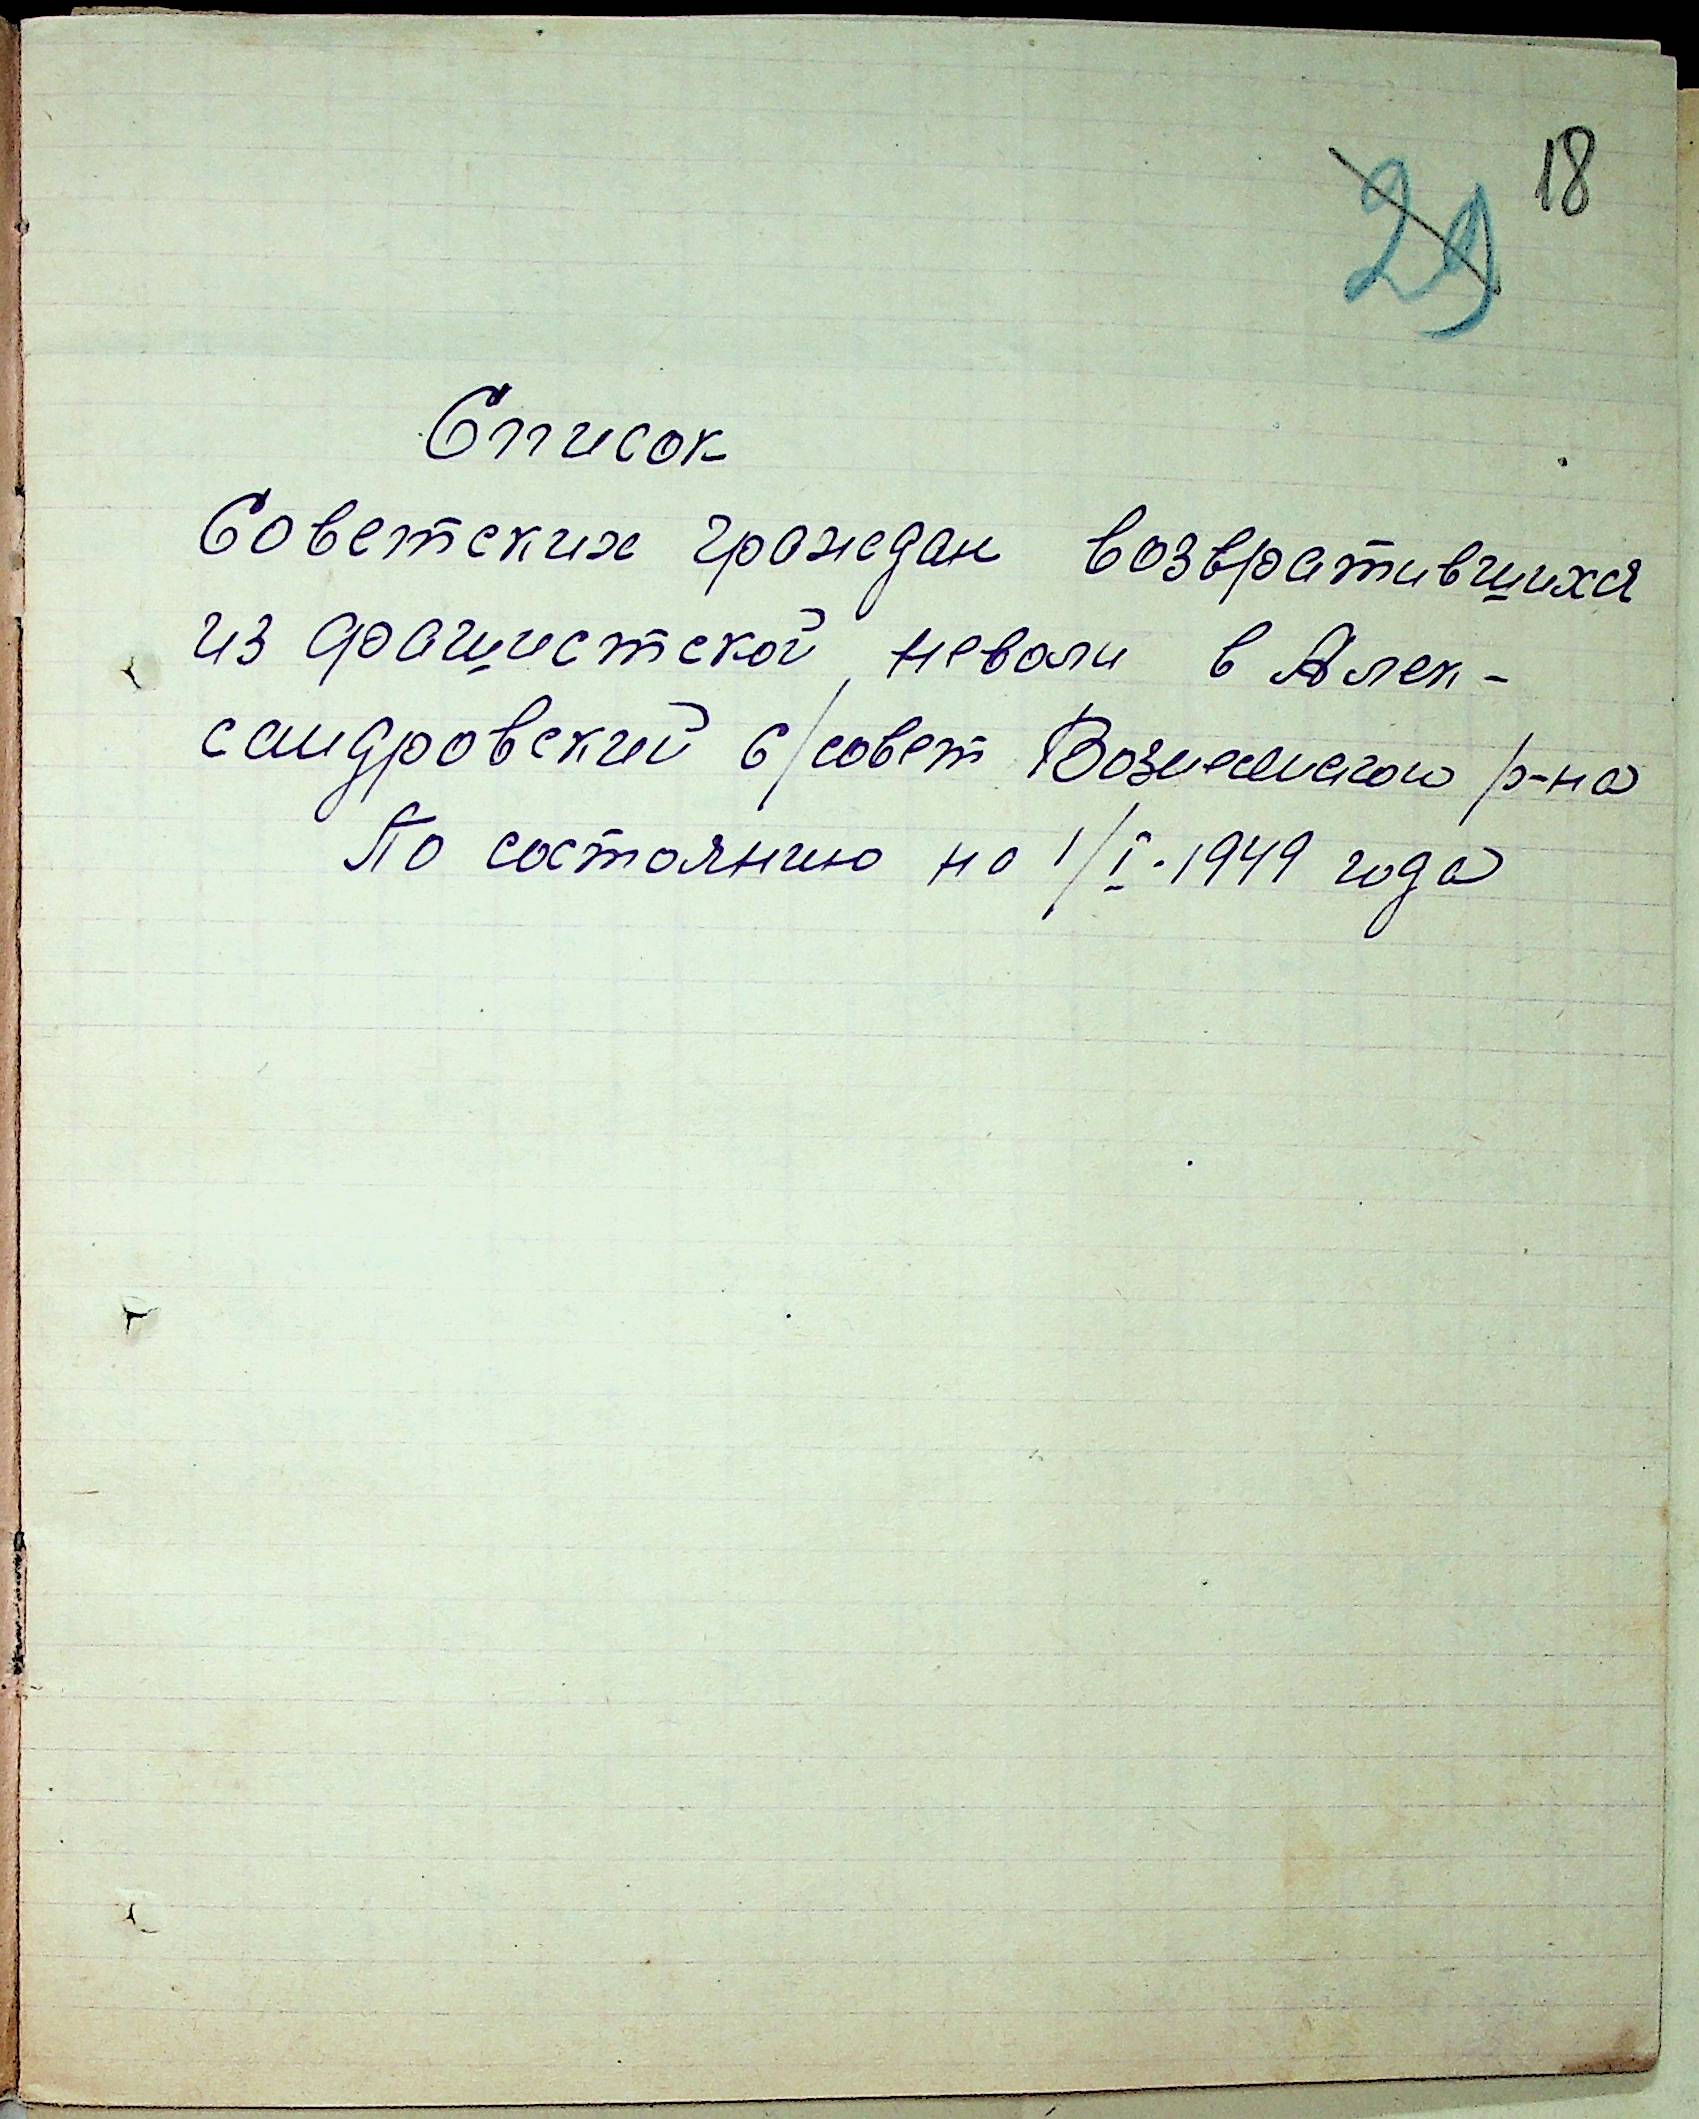 18
29
Список
Советских граждан возвратившихся
из фашистской неволи в Алек-
сандровский с/совет Вознесенского р-на
По состоянию на 1/I-1949 года